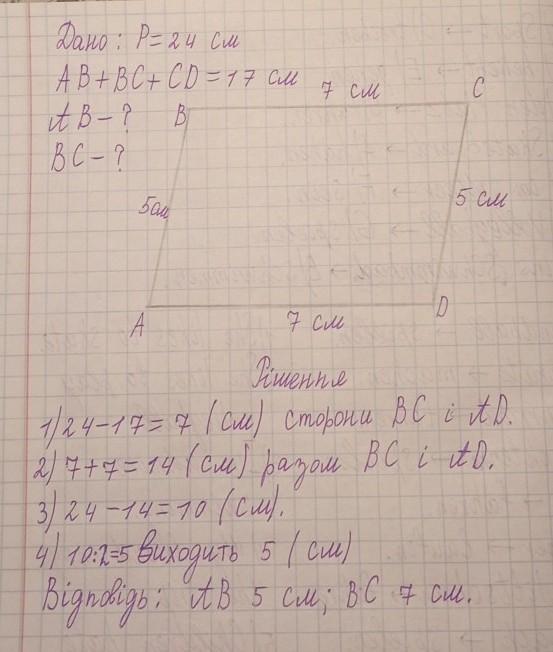 Дано: P=24 см
AB+BC+CD=17 см
AB-?
BC-?
B
7 см
C
5см
5 см
A
7 см
D
Рішення
1) 24-17=7 (см) сторони BC і AD.
2) 7+7=14 (см) разом BC і AD.
3) 24-14=10 (см).
4) 10:2=5 виходить 5 (см)
Відповідь: AB 5 см; BC 7 см.